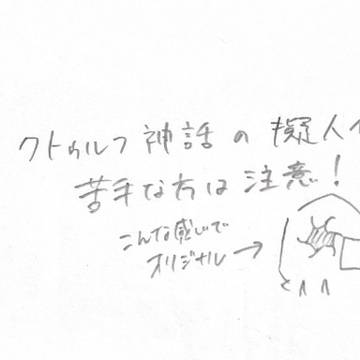 クトゥルフ神話の擬人化
苦手な方は注意!
こんな感じで
オリジナル→